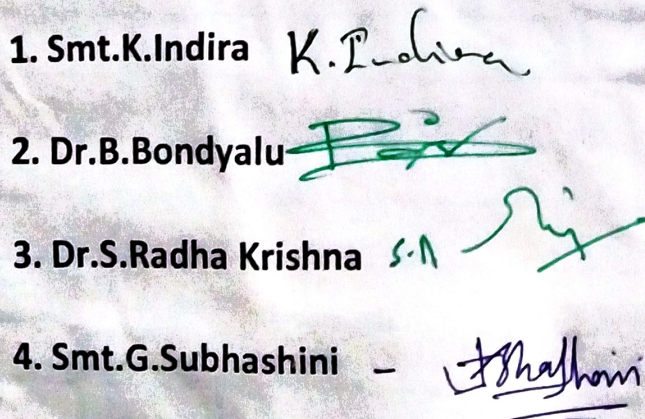 1. Smt.K.Indira K.Indira
2. Dr.B.Bondyalu
3. Dr.S.Radha Krishna S.R
4. Smt.G.Subhashini -